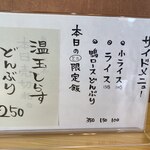 サイドメニュー
小ライス 100
ライス 150
鴨ロースどんぶり 350
本日の限定飯
温玉しらす
どんぶり
250